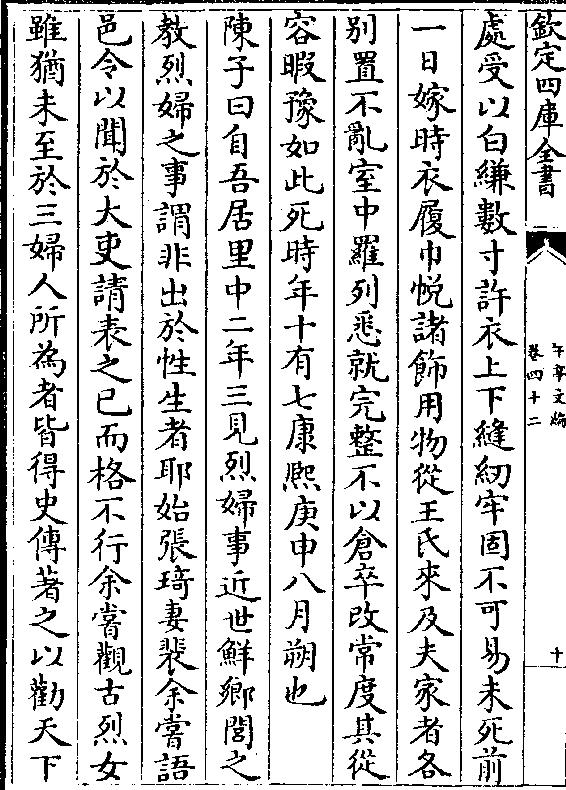 欽定四庫全書
午亭文編
卷四十二
十
處受以白縑數寸許衣上下縫紉牢固不可易未死前
一日嫁時衣履巾帨諸飾用物從王氏來及夫家者各
别置不亂室中羅列悉就完整不以倉卒改常度其從
容暇豫如此死時年十有七康熙庚申八月朔也
陳子曰自吾居里中二年三見烈婦事近世鮮鄉閭之
教烈婦之事謂非出於性生者耶始張琦妻裴余嘗語
邑令以聞於大吏請表之已而格不行余嘗觀古烈女
雖猶未至於三婦人所為者皆得史傳著之以勸天下